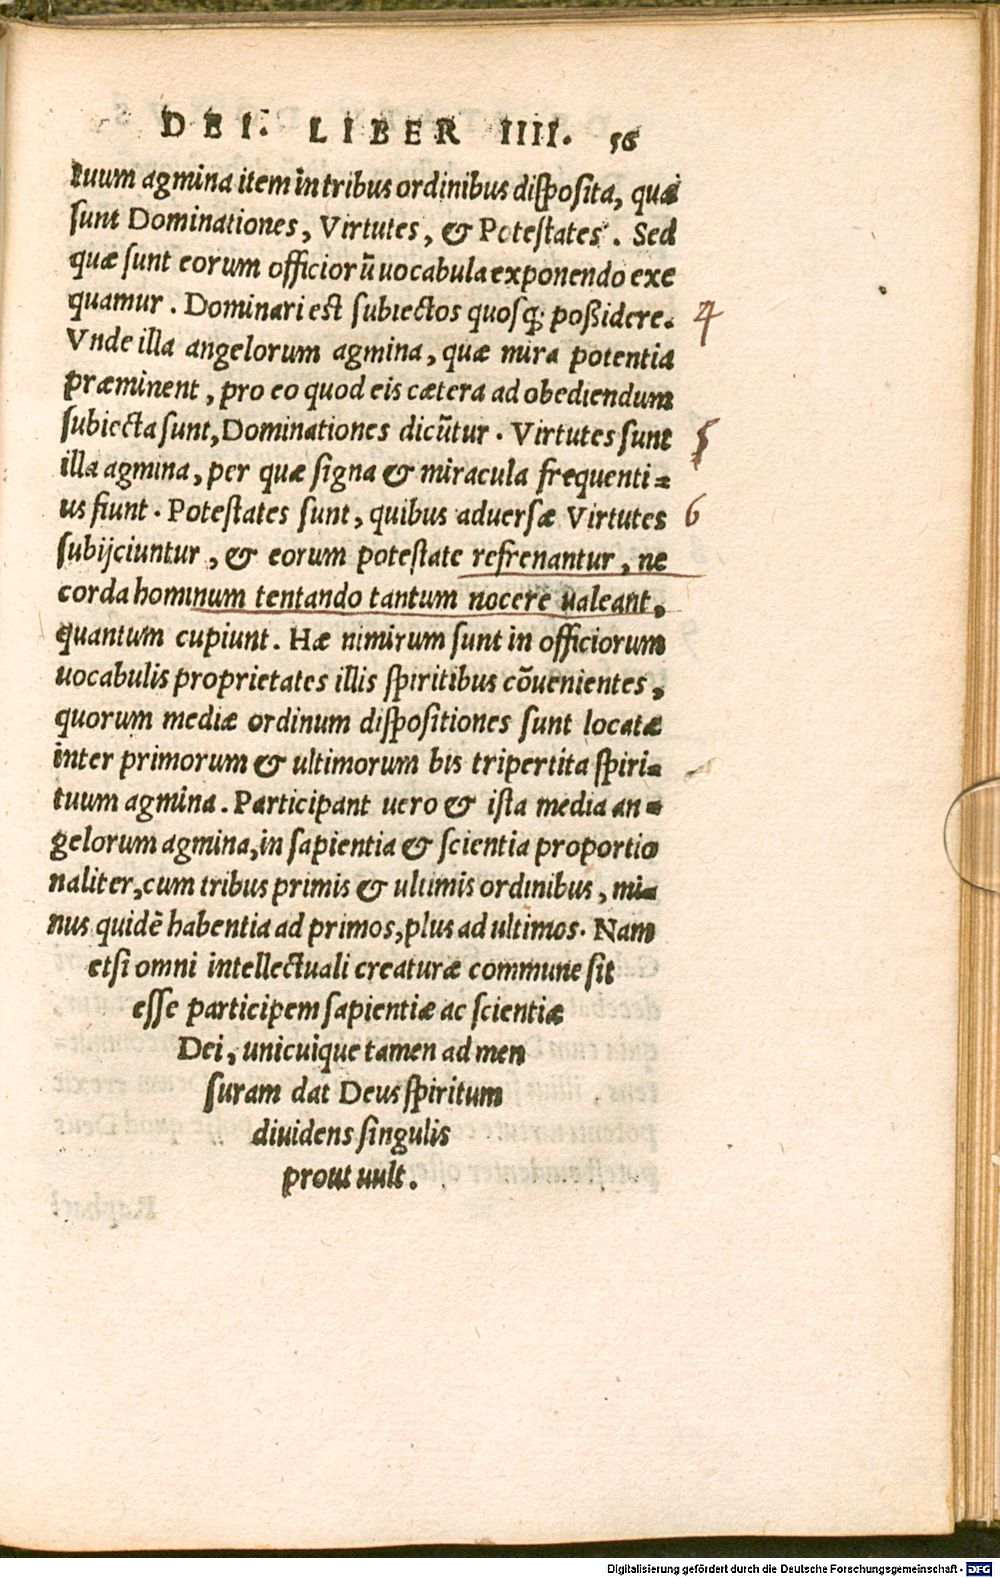 DEI. LIBER IIII. 56
tuum agmina item in tribus ordinibus disposita, quæ
sunt Dominationes, Virtutes, & Potestates. Sed
quæ sunt eorum officiorū uocabula exponendo exe
quamur. Dominari est subiectos quosq; poßidere. 4
Vnde illa angelorum agmina, quæ mira potentia
præminent, pro eo quod eis cætera ad obediendum
subiecta sunt, Dominationes dicūtur. Virtutes sunt 5
illa agmina, per quæ signa & miracula frequenti=
us fiunt. Potestates sunt, quibus aduersæ Virtutes 6
subijciuntur, & eorum potestate refrenantur, ne
corda hominum tentando tantum nocere ualeant,
quantum cupiunt. Hæ nimirum sunt in officiorum
uocabulis proprietates illis spiritibus cōuenientes,
quorum mediæ ordinum dispositiones sunt locatæ
inter primorum & ultimorum bis tripertita spiri=
tuum agmina. Participant uero & ista media an=
gelorum agmina, in sapientia & scientia proportio
naliter, cum tribus primis & ultimis ordinibus, mi=
nus quidē habentia ad primos, plus ad ultimos. Nam
etsi omni intellectuali creaturæ commune sit
esse participem sapientiæ ac scientiæ
Dei, unicuique tamen ad men
suram dat Deus spiritum
diuidens singulis
prout uult.
Digitalisierung gefördert durch die Deutsche Forschungsgemeinschaft - DFG